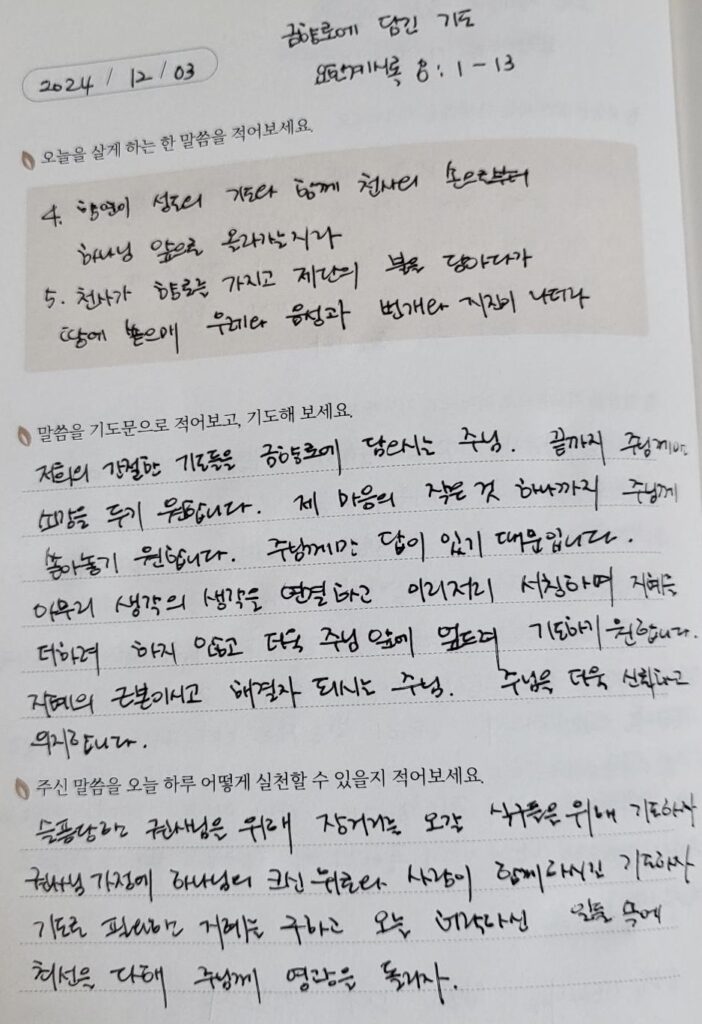 금향로에 담긴 기도
2024 / 12 / 03
요한계시록 8 : 1 - 13
오늘을 살게 하는 한 말씀을 적어보세요.
4. 향연이 성도의 기도와 함께 천사의 손으로부터
하나님 앞으로 올라가는지라
5. 천사가 향로를 가지고 제단의 불을 담아다가
땅에 쏟으매 우레와 음성과 번개와 지진이 나더라
말씀을 기도문으로 적어보고, 기도해 보세요.
저희의 간절한 기도들을 금향로에 담으시는 주님. 끝까지 주님께만
소망을 두기 원합니다. 제 마음의 작은 것 하나까지 주님께
쏟아놓기 원합니다. 주님께만 답이 있기 때문입니다.
아무리 생각의 생각을 연결하고 이리저리 서칭하며 지혜를
더하려 하지 않고 더욱 주님 앞에 엎드려 기도하기 원합니다.
지혜의 근본이시고 해결자 되시는 주님. 주님을 더욱 신뢰하고
의지합니다.
주신 말씀을 오늘 하루 어떻게 실천할 수 있을지 적어보세요.
슬픔당하신 권사님을 위해 장거리를 오갈 식구들을 위해 기도하자
권사님 가정에 하나님의 크신 위로와 사랑이 함께하시길 기도하자
기도로 필요한 지혜를 구하고 오늘 허락하신 일들 속에
최선을 다해 주님께 영광을 돌리자.